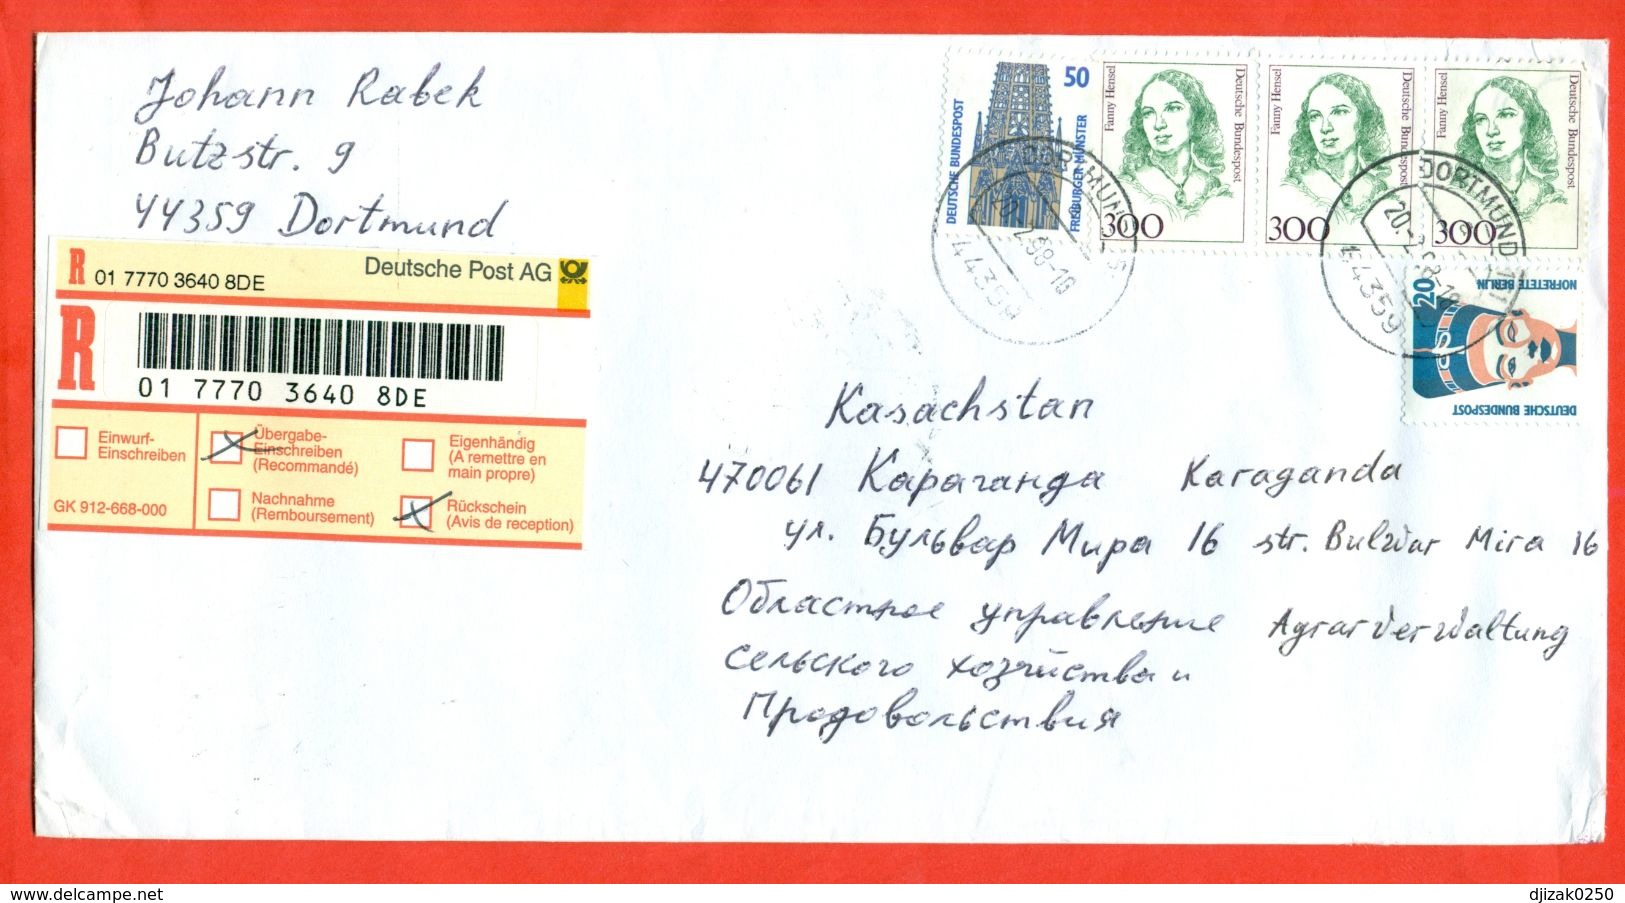 Johann Rabek
Butzstr. 9
44359 Dortmund
R 01 7770 3640 8DE Deutsche Post AG
R
01 7770 3640 8DE
Einwurf-
Einschreiben
Übergabe-
Einschreiben
(Recommandé)
Eigenhändig
(A remettre en
main propre)
GK 912-668-000
Nachnahme
(Remboursement)
Rückschein
(Avis de reception)
50
DEUTSCHE BUNDESPOST
FREIBURGER MÜNSTER
Fanny Hensel
Deutsche Bundespost
300
Fanny Hensel
Deutsche Bundespost
300
Fanny Hensel
Deutsche Bundespost
300
20
NOFRETETE BERLIN
DEUTSCHE BUNDESPOST
DORTMUND
44359
DORTMUND
44359
Kasachstan
470061 Караганда Karaganda
ул. Бульвар Мира 16 str. Bulwar Mira 16
Областное управление Agrarverwaltung
сельского хозяйства и
Продовольствия
delcampe.net
djizak0250